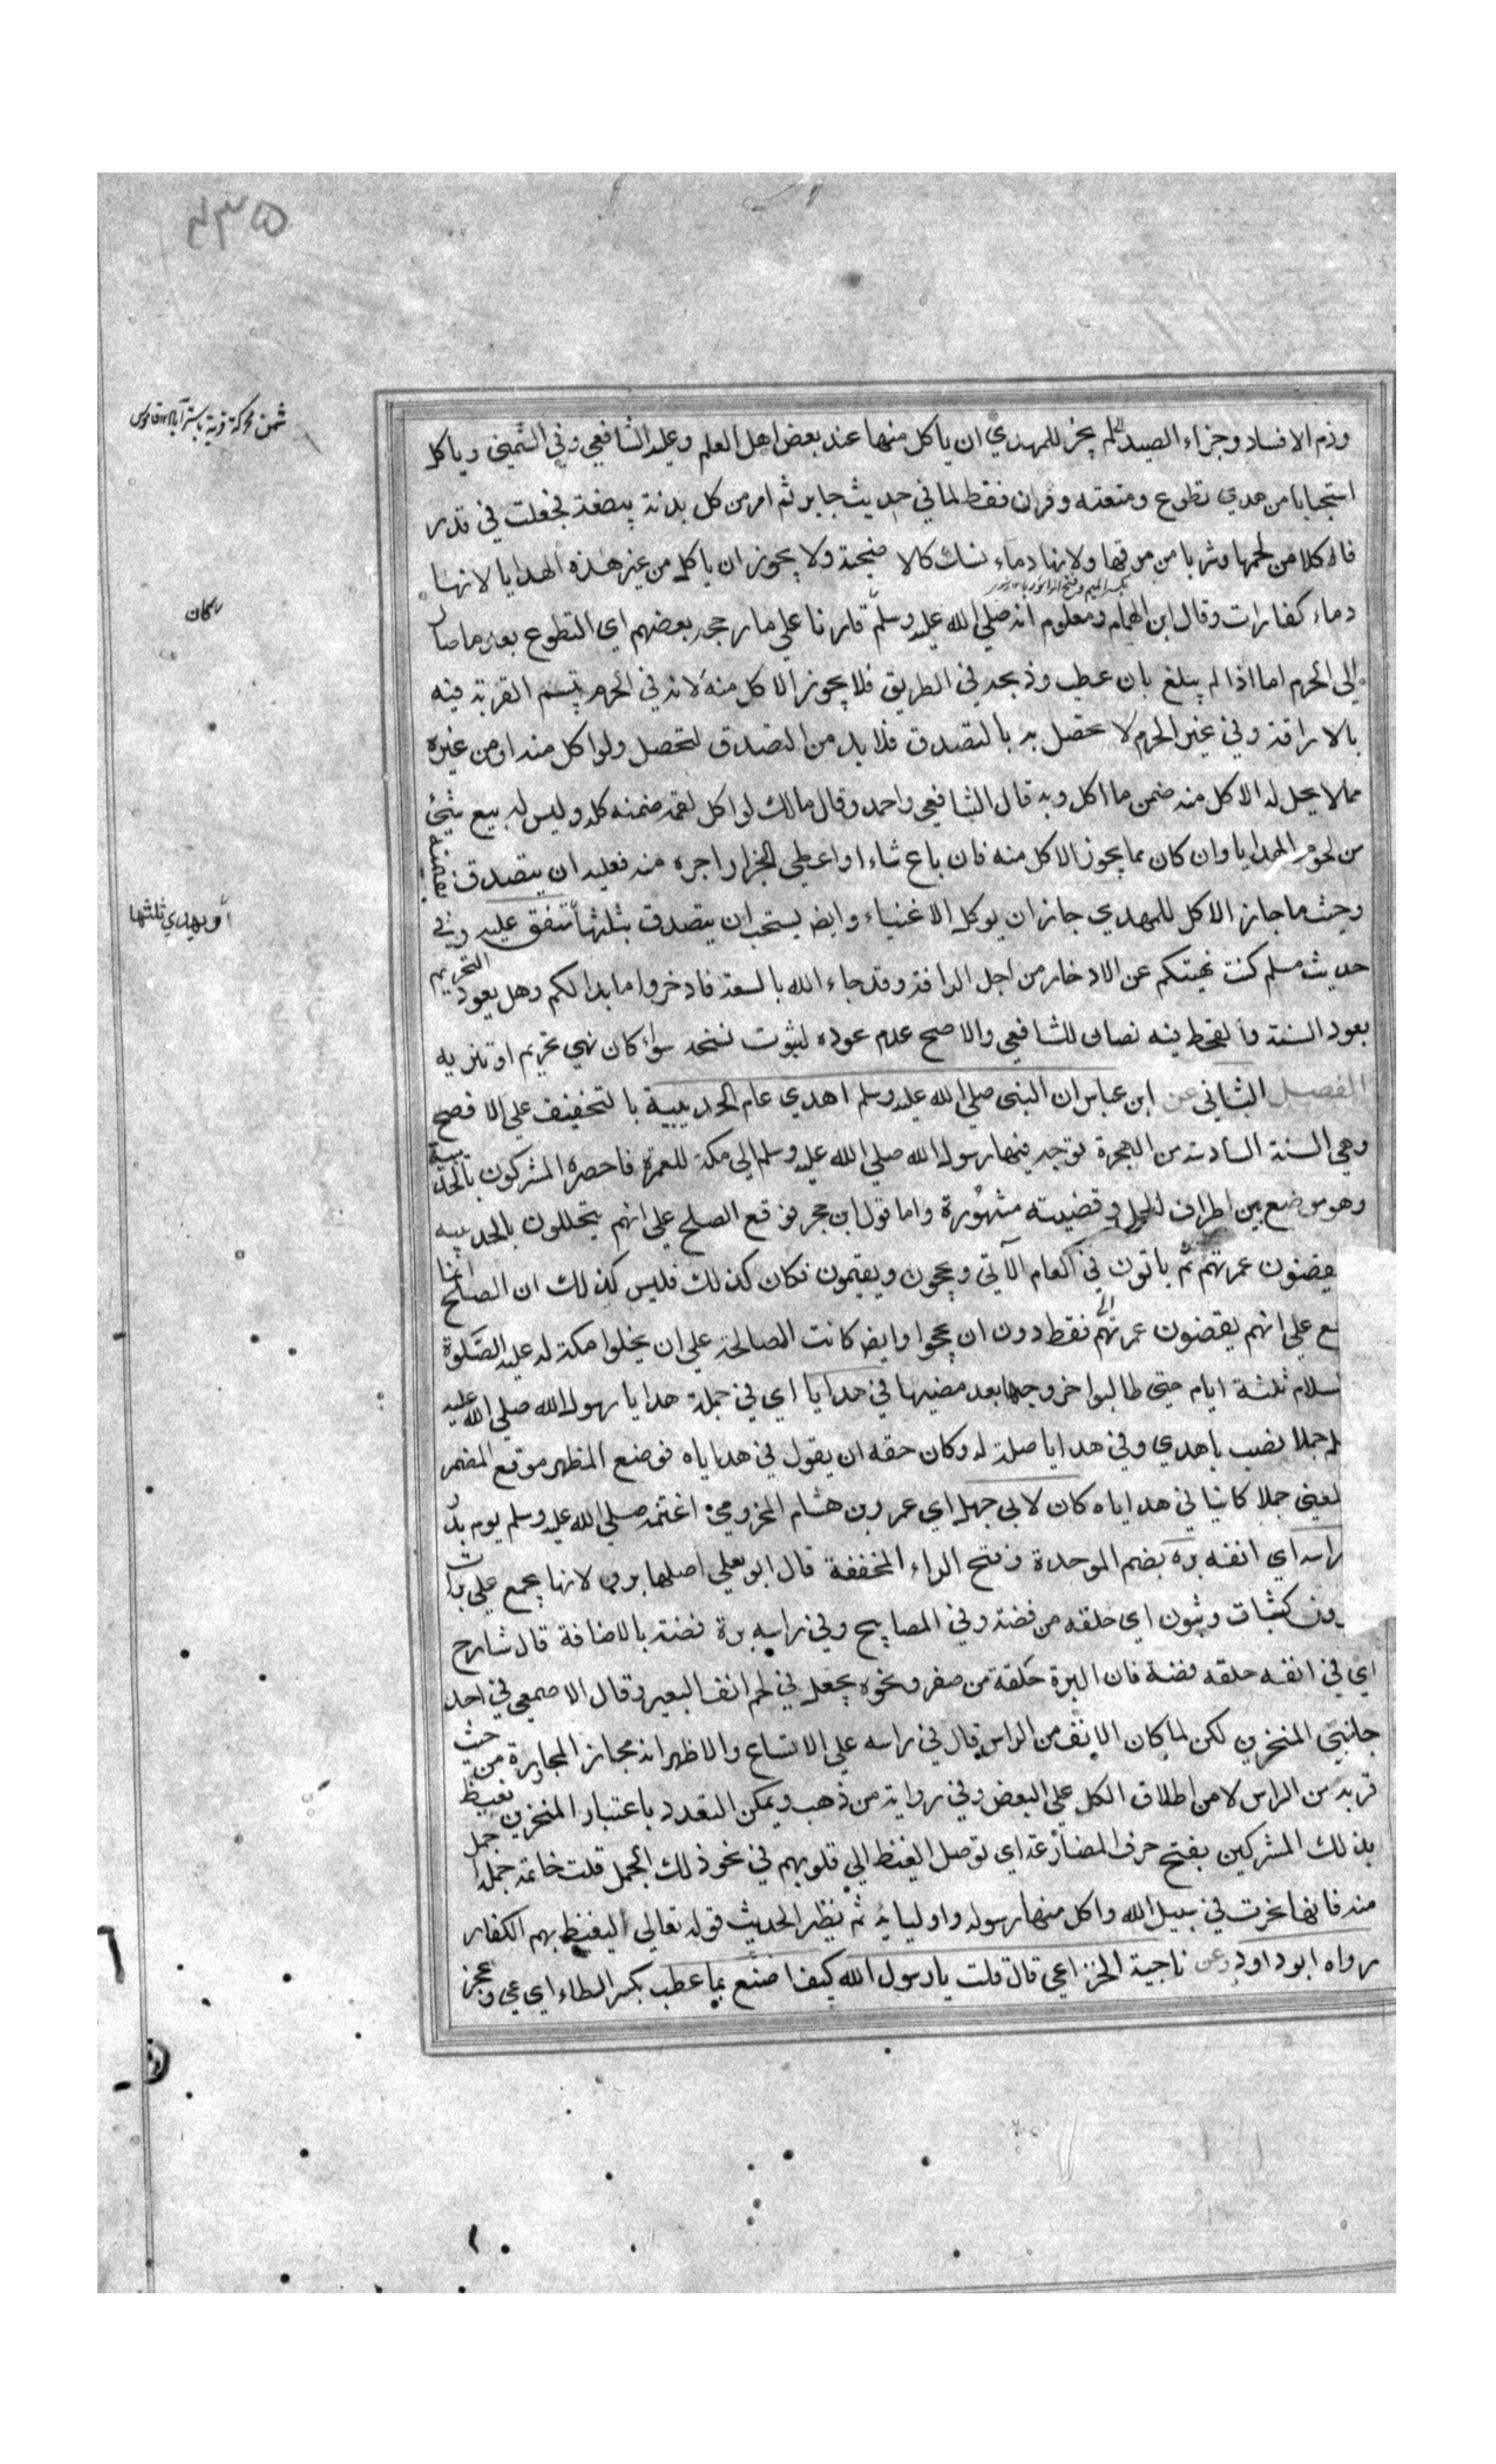 ٤٣٥
ودم الافساد وجزاء الصيد لم يجز للمهدي ان ياكل منها عند بعض اهل العلم وعليه الشافعي وفي الشمني وياكل
استحبابا من هدي تطوع ومتعته وقران فقط لما في حديث جابر ثم امر من كل بدنة ببضعة فجعلت في قدر
فاكلا من لحمها وشربا من مرقها ولانها دماء نسك كالاضحية ولا يجوز ان ياكل من غير هذه الهدايا لانها
دماء كفارات وقال ابن الهمام ومعلوم انه صلي الله عليه وسلم قارنا علي ما رجحه بعضهم اي التطوع بعد ما صار
الي الحرم اما اذا لم يبلغ بان عطب وذبحه في الطريق فلا يجوز الاكل منه لانه في الحرم يتم القربة فيه
بالاراقة وفي غير الحرم لا تحصل به بالتصدق فلا بد من التصدق لتحصل ولو اكل منه او من غيره
مما لا يحل له الاكل منه ضمن ما اكل وبه قال الشافعي واحمد وقال مالك لو اكل لقمة ضمنه كله وليس له بيع شيئ
من لحوم الهدايا وان كان مما يجوز الاكل منه فان باع شاء او اعطي الجزار اجره منه فعليه ان يتصدق بقيمته
وحيث ما جاز الاكل للمهدي جاز ان يوكل الاغنياء وايضا يستحب ان يتصدق بثلثها متفق عليه وفي
حديث مسلم كنت نهيتكم عن الادخار من اجل الرافة وقد جاء الله بالسعة فادخروا ما بدا لكم وهل يعود التحريم
بعود السنة والقحط فيه نصان للشافعي والاصح عدم عوده لثبوت نسخه سواء كان نهي تحريم او تنزيه
الفصل الثاني عن ابن عباس ان النبي صلي الله عليه وسلم اهدي عام الحديبية بالتخفيف علي الافصح
وهي السنة السادسة من الهجرة توجه فيها رسول الله صلي الله عليه وسلم الي مكة للعمرة فاحصره المشركون بالحديبية
وهو موضع بين اطراف الحل وقضيته مشهورة واما قول ابن حجر فوقع الصلح علي انهم يتحللون بالحديبيه
يقضون عمرتهم ثم ياتون في العام الآتي ويحجون ويقيمون فكان كذلك فليس كذلك ان الصلح انما
ع علي انهم يقضون عمرتهم فقط دون ان يحجوا وايضا كانت المصالحة علي ان يخلوا مكة له عليه الصلوة
لسلام ثلثة ايام حتي طالبوا خروجها بعد مضيها في هدايا اي في جملة هدايا رسول الله صلي الله عليه
لم جملا نصب باهدي وفي هدايا صلة له وكان حقه ان يقول في هداياه فوضع المظهر موقع المضمر
لعني جملا كائنا في هداياه كان لابي جهل اي عمرو بن هشام المخزومي اغتنمه صلي الله عليه وسلم يوم بدر
راسه اي انفه بره بضم الموحدة وفتح الراء المخففة قال ابو علي اصلها بروة لانها يجمع علي برات
ون كثبات وثبون اي حلقه من فضة وفي المصابيح وفي راسه برة فضة بالاضافة قال شارح
اي في انفه حلقه فضة فان البرة حلقة من صفر ونحوه يجعل في لحم انف البعير وقال الاصمعي في احد
جانبي المنخرين لكن لما كان الانف من الراس قال في راسه علي الاتساع والاظهر انه مجاز المجاورة من حيث
قربه من الراس لا من اطلاق الكل علي البعض وفي رواية من ذهب ويمكن التعدد باعتبار المنخرين يغيظ
بذلك المشركين بفتح حرف المضارعة اي توصل الغيظ الي قلوبهم في نحو ذلك الجمل قلت خاتمة جملة جمل
منه فانها نحرت في سبيل الله واكل منها رسوله واوليائه ثم نظير الحديث قوله تعالي ليغيظ بهم الكفار
رواه ابو داود وعن ناجية الخزاعي قال قلت يا رسول الله كيف اصنع بما عطب بكسر الطاء اي عي وعجز
شمن محركة قرية باستراباد قاموس
كان
او يهدي ثلثها